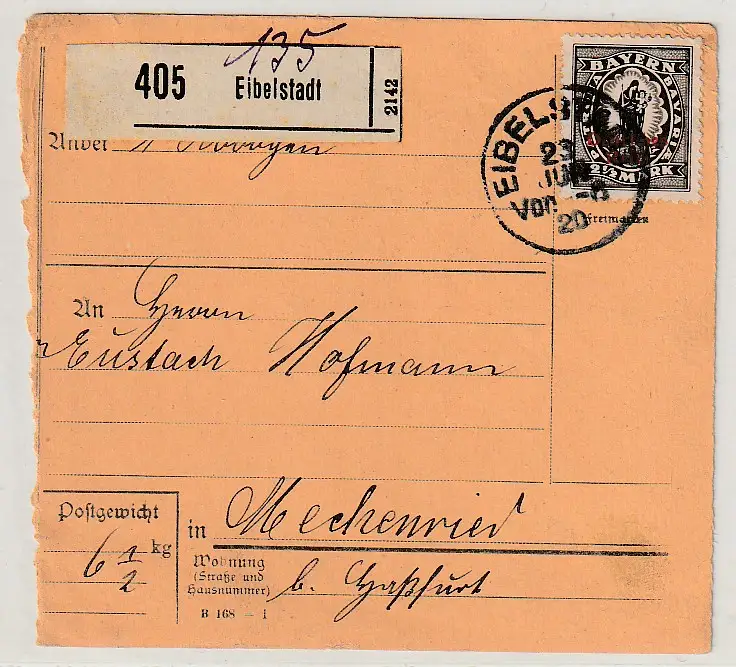 135
405 Eibelstadt
2142
Anbei
BAYERN
BAVARIA
2½ MARK
EIBELS
23
JUN
VOR
20
Freimarken
An Herrn
Eustach Hofmann
Postgewicht
6 1/2 kg
in Mechenried
Wohnung
(Straße und
Hausnummer)
b. Haßfurt
B 168 — 1